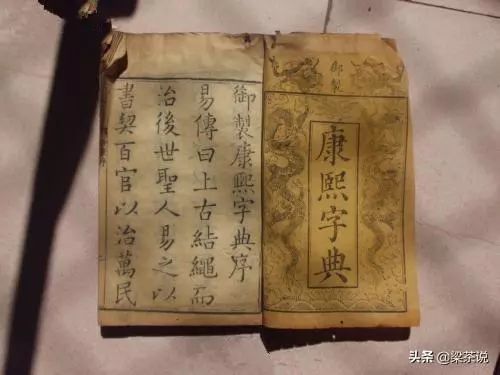 御製
康熙字典
御製康熙字典序
易傳曰上古結繩而
治後世聖人易之以
書契百官以治萬民
头条 @梁茶说